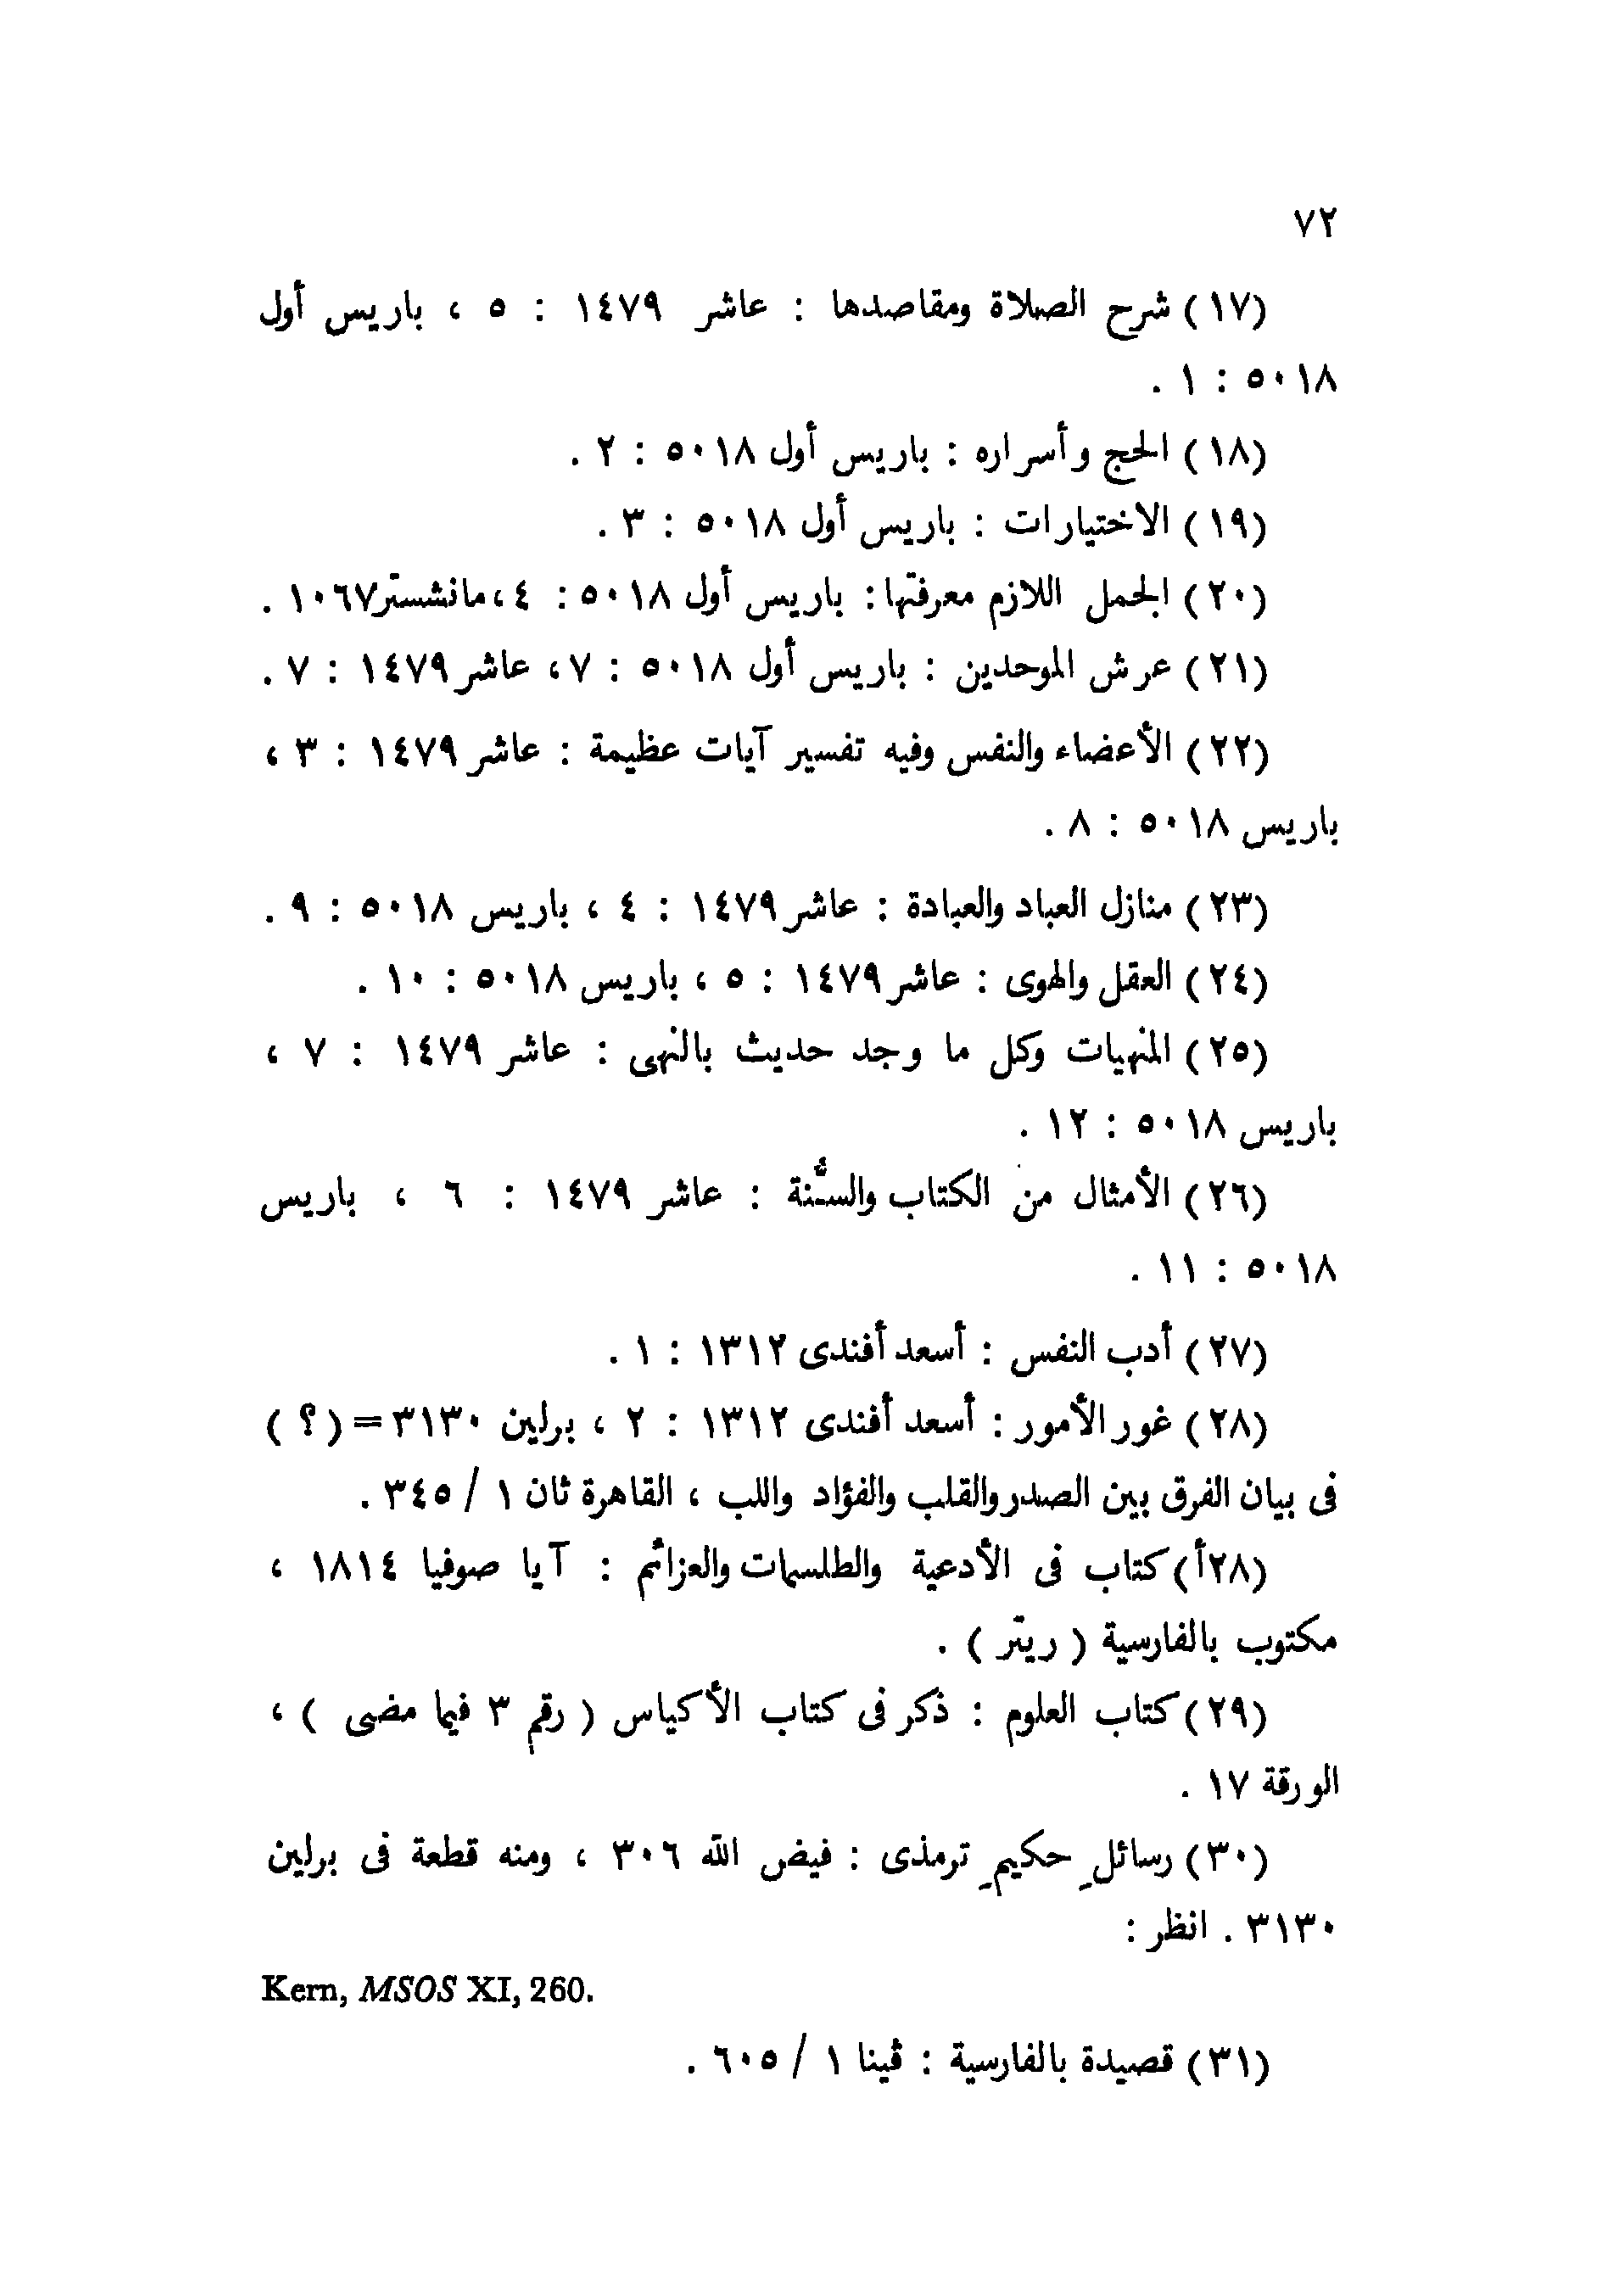 ٧٢
(١٧) شرح الصلاة ومقاصدها : عاشر ١٤٧٩ : ٥ ، باريس أول
٥٠١٨ : ١ .
(١٨) الحج وأسراره : باريس أول ٥٠١٨ : ٢ .
(١٩) الاختيارات : باريس أول ٥٠١٨ : ٣ .
(٢٠) الجمل اللازم معرفتها : باريس أول ٥٠١٨ : ٤ ، مانشستر ١٠٦٧ .
(٢١) عرش الموحدين : باريس أول ٥٠١٨ : ٧ ، عاشر ١٤٧٩ : ٧ .
(٢٢) الأعضاء والنفس وفيه تفسير آيات عظيمة : عاشر ١٤٧٩ : ٣ ،
باريس ٥٠١٨ : ٨ .
(٢٣) منازل العباد والعبادة : عاشر ١٤٧٩ : ٤ ، باريس ٥٠١٨ : ٩ .
(٢٤) العقل والهوى : عاشر ١٤٧٩ : ٥ ، باريس ٥٠١٨ : ١٠ .
(٢٥) المنهيات وكل ما وجد حديث بالنهى : عاشر ١٤٧٩ : ٧ ،
باريس ٥٠١٨ : ١٢ .
(٢٦) الأمثال من الكتاب والسُّنة : عاشر ١٤٧٩ : ٦ ، باريس
٥٠١٨ : ١١ .
(٢٧) أدب النفس : أسعد أفندى ١٣١٢ : ١ .
(٢٨) غور الأمور : أسعد أفندى ١٣١٢ : ٢ ، برلين ٣١٣٠ = ( ؟ )
فى بيان الفرق بين الصدر والقلب والفؤاد واللب ، القاهرة ثان ١ / ٣٤٥ .
(٢٨أ) كتاب فى الأدعية والطلسمات والعزائم : آيا صوفيا ١٨١٤ ،
مكتوب بالفارسية ( ريتر ) .
(٢٩) كتاب العلوم : ذكر فى كتاب الأكياس ( رقم ٣ فيما مضى ) ،
الورقة ١٧ .
(٣٠) رسائلِ حكيمِ ترمذى : فيض الله ٣٠٦ ، ومنه قطعة فى برلين
٣١٣٠ . انظر :
Kern, MSOS XI, 260.
(٣١) قصيدة بالفارسية : ڤينا ١ / ٦٠٥ .